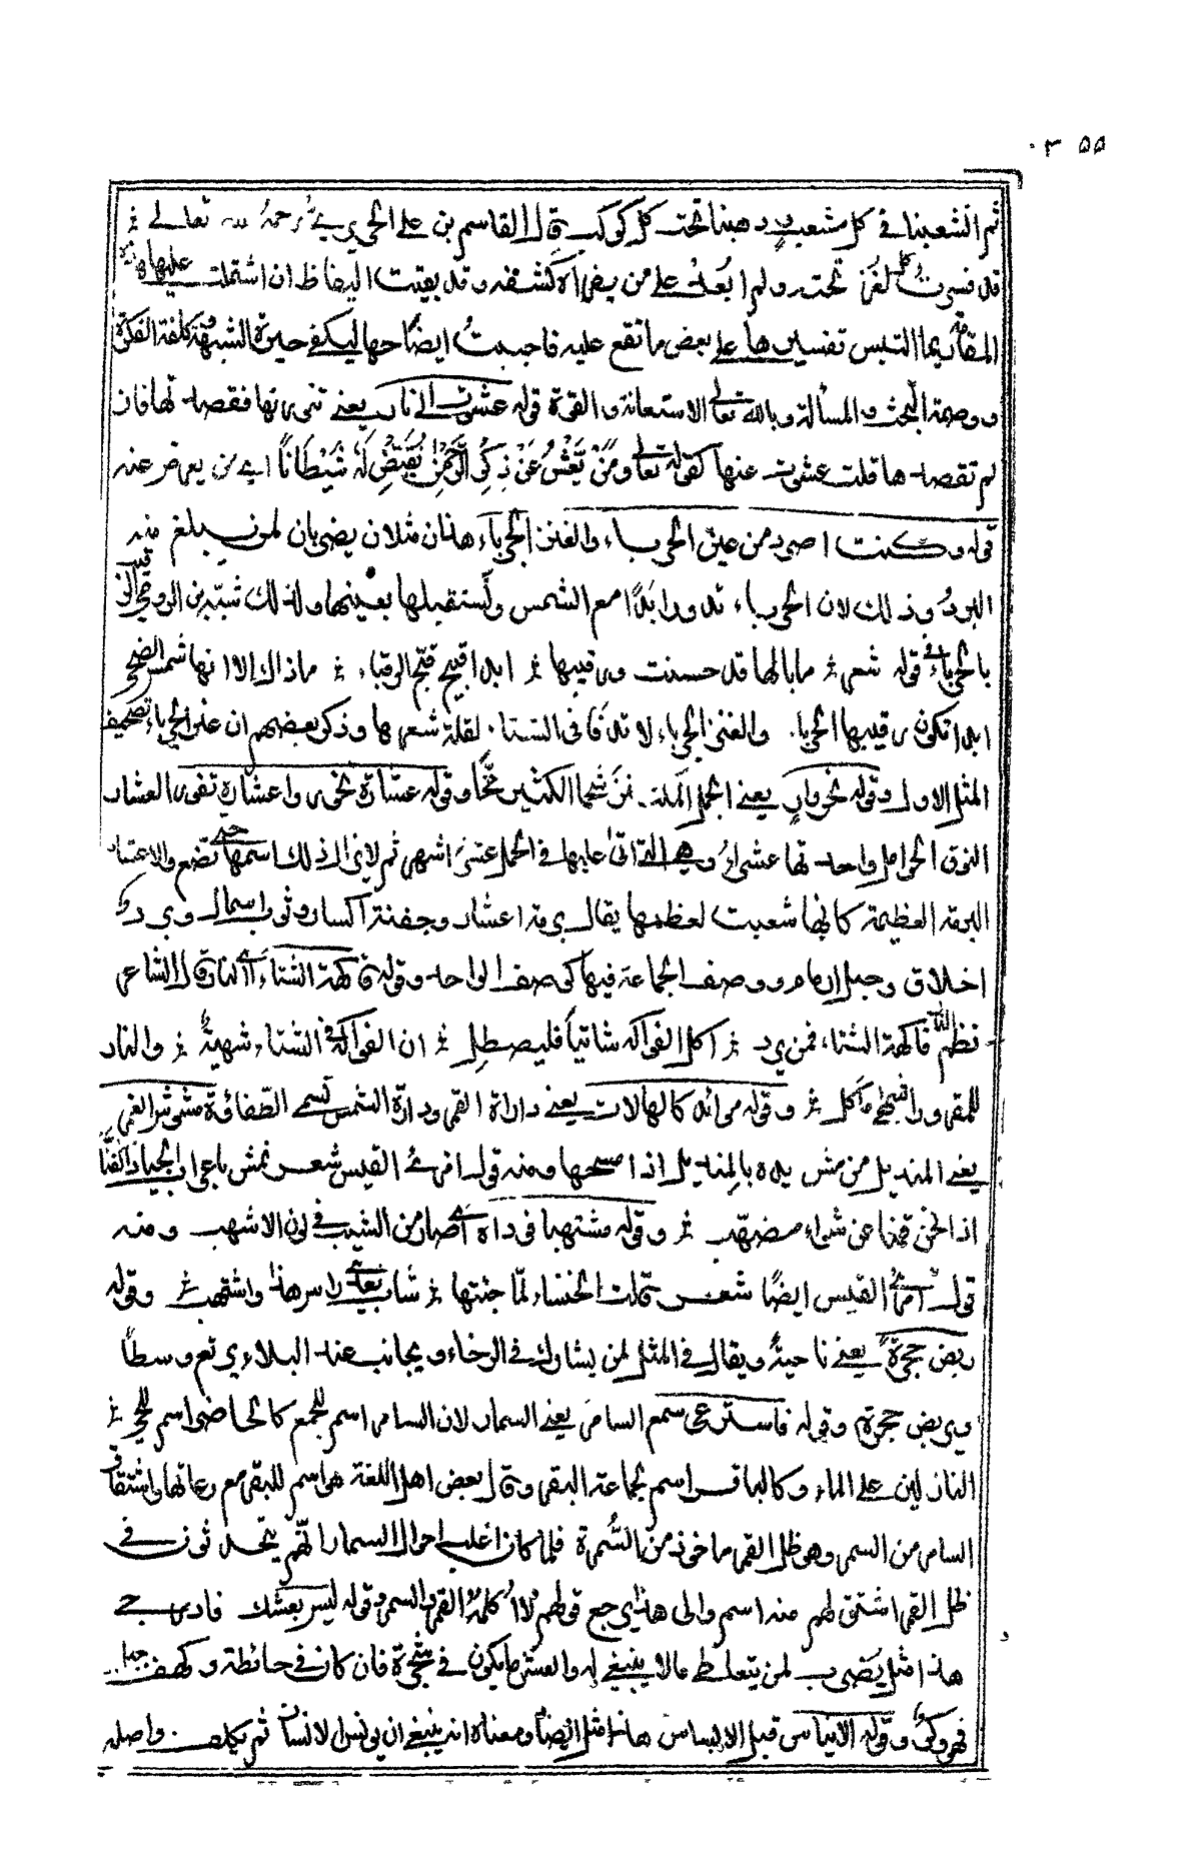 ٠٣ ۵۵
ثم انشعبنا في كل مشعب وذهبنا تحت كل كوكب قال القاسم بن علي الحريري رحمه الله تعالى
قد فسرت كل لغز تحته ولم ابعد على من يقرأه كشفه وقد بقيت اليفاظ ان اشتملت عليها هذه
المقامة ربما التبس تفسيرها على بعض من تقع عليه فاحببت ايضاحها ليكفى حيرة الشبهة وكلفة الفكرة
ووصمة البحث والمسألة وبالله تعالى الاستعانة والقوة قوله عشوت الى نار يعني تنورتها فقصدتها فان
لم تقصدها قلت عشوت عنها كقوله تعالى وَمَنْ يَعْشُ عَنْ ذِكْرِ الرَّحْمٰنِ نُقَيِّضْ لَهُ شَيْطَانًا اي من يعرض عنه
قوله وكنت اصرد من عين الحرباء والعنز الجرباء هذان مثلان يضربان لمن يبلغ منه
البرد وذلك لان الحرباء تدور ابدًا مع الشمس وتستقبلها بعينها ولذلك شبه ابن الرومي الرقيب
بالحرباء في قوله شعر ما بالها قد حسنت ورقيبها ابدا قبيح قبح الرقباء ما ذاك الا انها شمس الضحى
ابدا تكون رقيبها الحرباء والعنز الجرباء لا تدفأ في الشتاء لقلة شعرها وذكر بعضهم ان عنز الجرباء تصحيف
المثل الاول وقوله نحر وارٍ يعني الجمل المكتنز شحما الكثير مخًا وقوله عشاره تخور واعشاره تفور العشار
النوق الحوامل واحدتها عشراء وهي التي اتى عليها في الحمل عشرة اشهر ثم لا يزال ذلك اسمها حتى تضع والاعشار
البرمة العظيمة كانها شعبت لعظمها يقال برمة اعشار وجفنة اكسار وثوب اسمال وبرد
اخلاق وحبل ارمام ووصف الجماعة فيها كوصف الواحد وقوله فاكهة الشتاء اي النار قال الشاعر
نظم النار فاكهة الشتاء فمن يرد اكل الفواكه شاتيا فليصطل ان الفواكه في الشتاء شهية والنار
للمقرور افضل مأكل وقوله موائد كالهالات يعني دارة القمر ودارة الشمس تسمى الطفاوة مشوش الغمر
يعني المنديل من مش يده بالمنديل اذا مسحها ومنه قول امرئ القيس شعر نمش باعراف الجياد اكفنا
اذا نحن قمنا عن شواء مضهب وقوله مشتهبا فوداه اي صار من الشيب في لون الاشهب ومنه
قول امرئ القيس ايضًا شعر قالت الخنساء لما جئتها شاب بعدي رأس هذا واشتهب وقوله
ربض حجرةً يعني ناحية ويقال في المثل لمن يشارك في الرخاء ويجانب عند البلاء يرتع وسطًا
ويربض حجرة وقوله فاسترعى سمع السامر يعني السمار لان السامر اسم للجمع كالحاضر اسم للحي
النازلين على الماء وكالباقر اسم لجماعة البقر وقال بعض اهل اللغة هو اسم للبقر مع رعاتها واشتقاق
السامر من السمر وهو ظل القمر مأخوذ من السُّمرة فلما كان اغلب احوال السمار انهم يتحدثون في
ظل القمر اشتق لهم منه اسم والى هذا يرجع قولهم لا اكلمه القمر والسمر وقوله ليس بعشك فادرجي
هذا مثل يضرب لمن يتعاطى ما لا ينبغي له والعش ما يكون في شجرة فان كان في حائط او كهف جبل
فهو وكر وقوله الايناس قبل الابساس هذا مثل ايضًا ومعناه انه ينبغي ان يونس الانسان ثم يكلف واصله